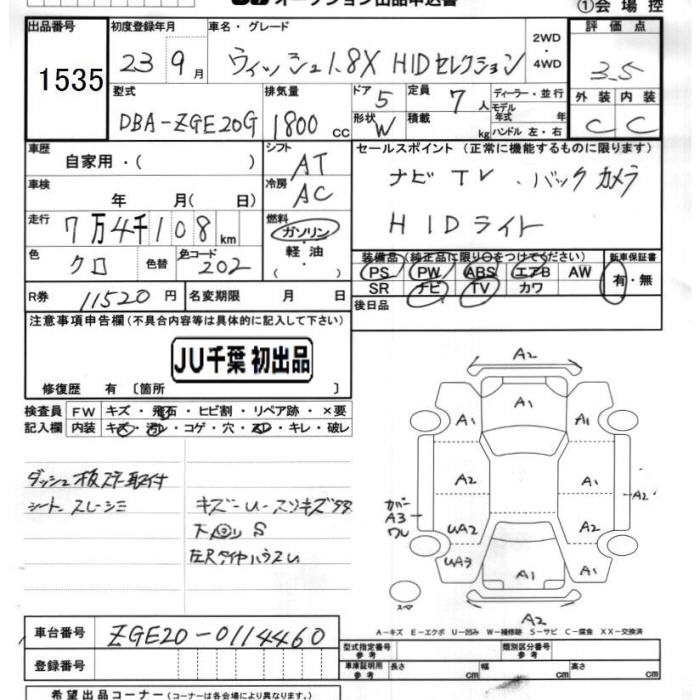 オークション出品申込書
①会場控
出品番号
1535
初度登録年月
23 9月
車名・グレード
ウィッシュ1.8X HIDセレクション
2WD
・
4WD
評価点
3.5
型式
DBA-ZGE20G
排気量
1800 cc
ドア 5
形状 W
定員 7人
積載 kg
ディーラー・並行
モデル年式 年
ハンドル 左・右
外装 内装
C C
車歴
自家用・( )
シフト
AT
セールスポイント(正常に機能するものに限ります)
ナビ TV . バックカメラ
HIDライト
車検
年 月( 日)
冷房
AC
走行
7万4千108km
燃料
ガソリン
・
軽油
・
( )
色
クロ
色替
色コード
202
装備品(純正品に限り○をつけてください)
新車保証書
PS PW ABS エアB AW
SR ナビ TV カワ
有・無
R券 11520円
名変期限 月 日
後日品
注意事項申告欄(不具合内容等は具体的に記入して下さい)
JU千葉 初出品
修復歴 有〔箇所 〕
検査員記入欄
FW キズ・飛石・ヒビ割・リペア跡・×要
内装 キズ・汚レ・コゲ・穴・スレ・キレ・破レ
シート スレ シミ
S
A2
A1 A1 A1
A2 A1 A2
カバー A3 ワレ
UA2 A2
UA3 A1 A1
スペア
A2
A-キズ E-エクボ U-凹み W-補修跡 S-サビ C-腐食 XX-交換済
車台番号
ZGE20-0114460
登録番号
型式指定番号 参考
類別区分番号 参考
車庫証明用 参考 長さ cm 幅 cm 高さ cm
希望出品コーナー(コーナーは各会場により異なります。)